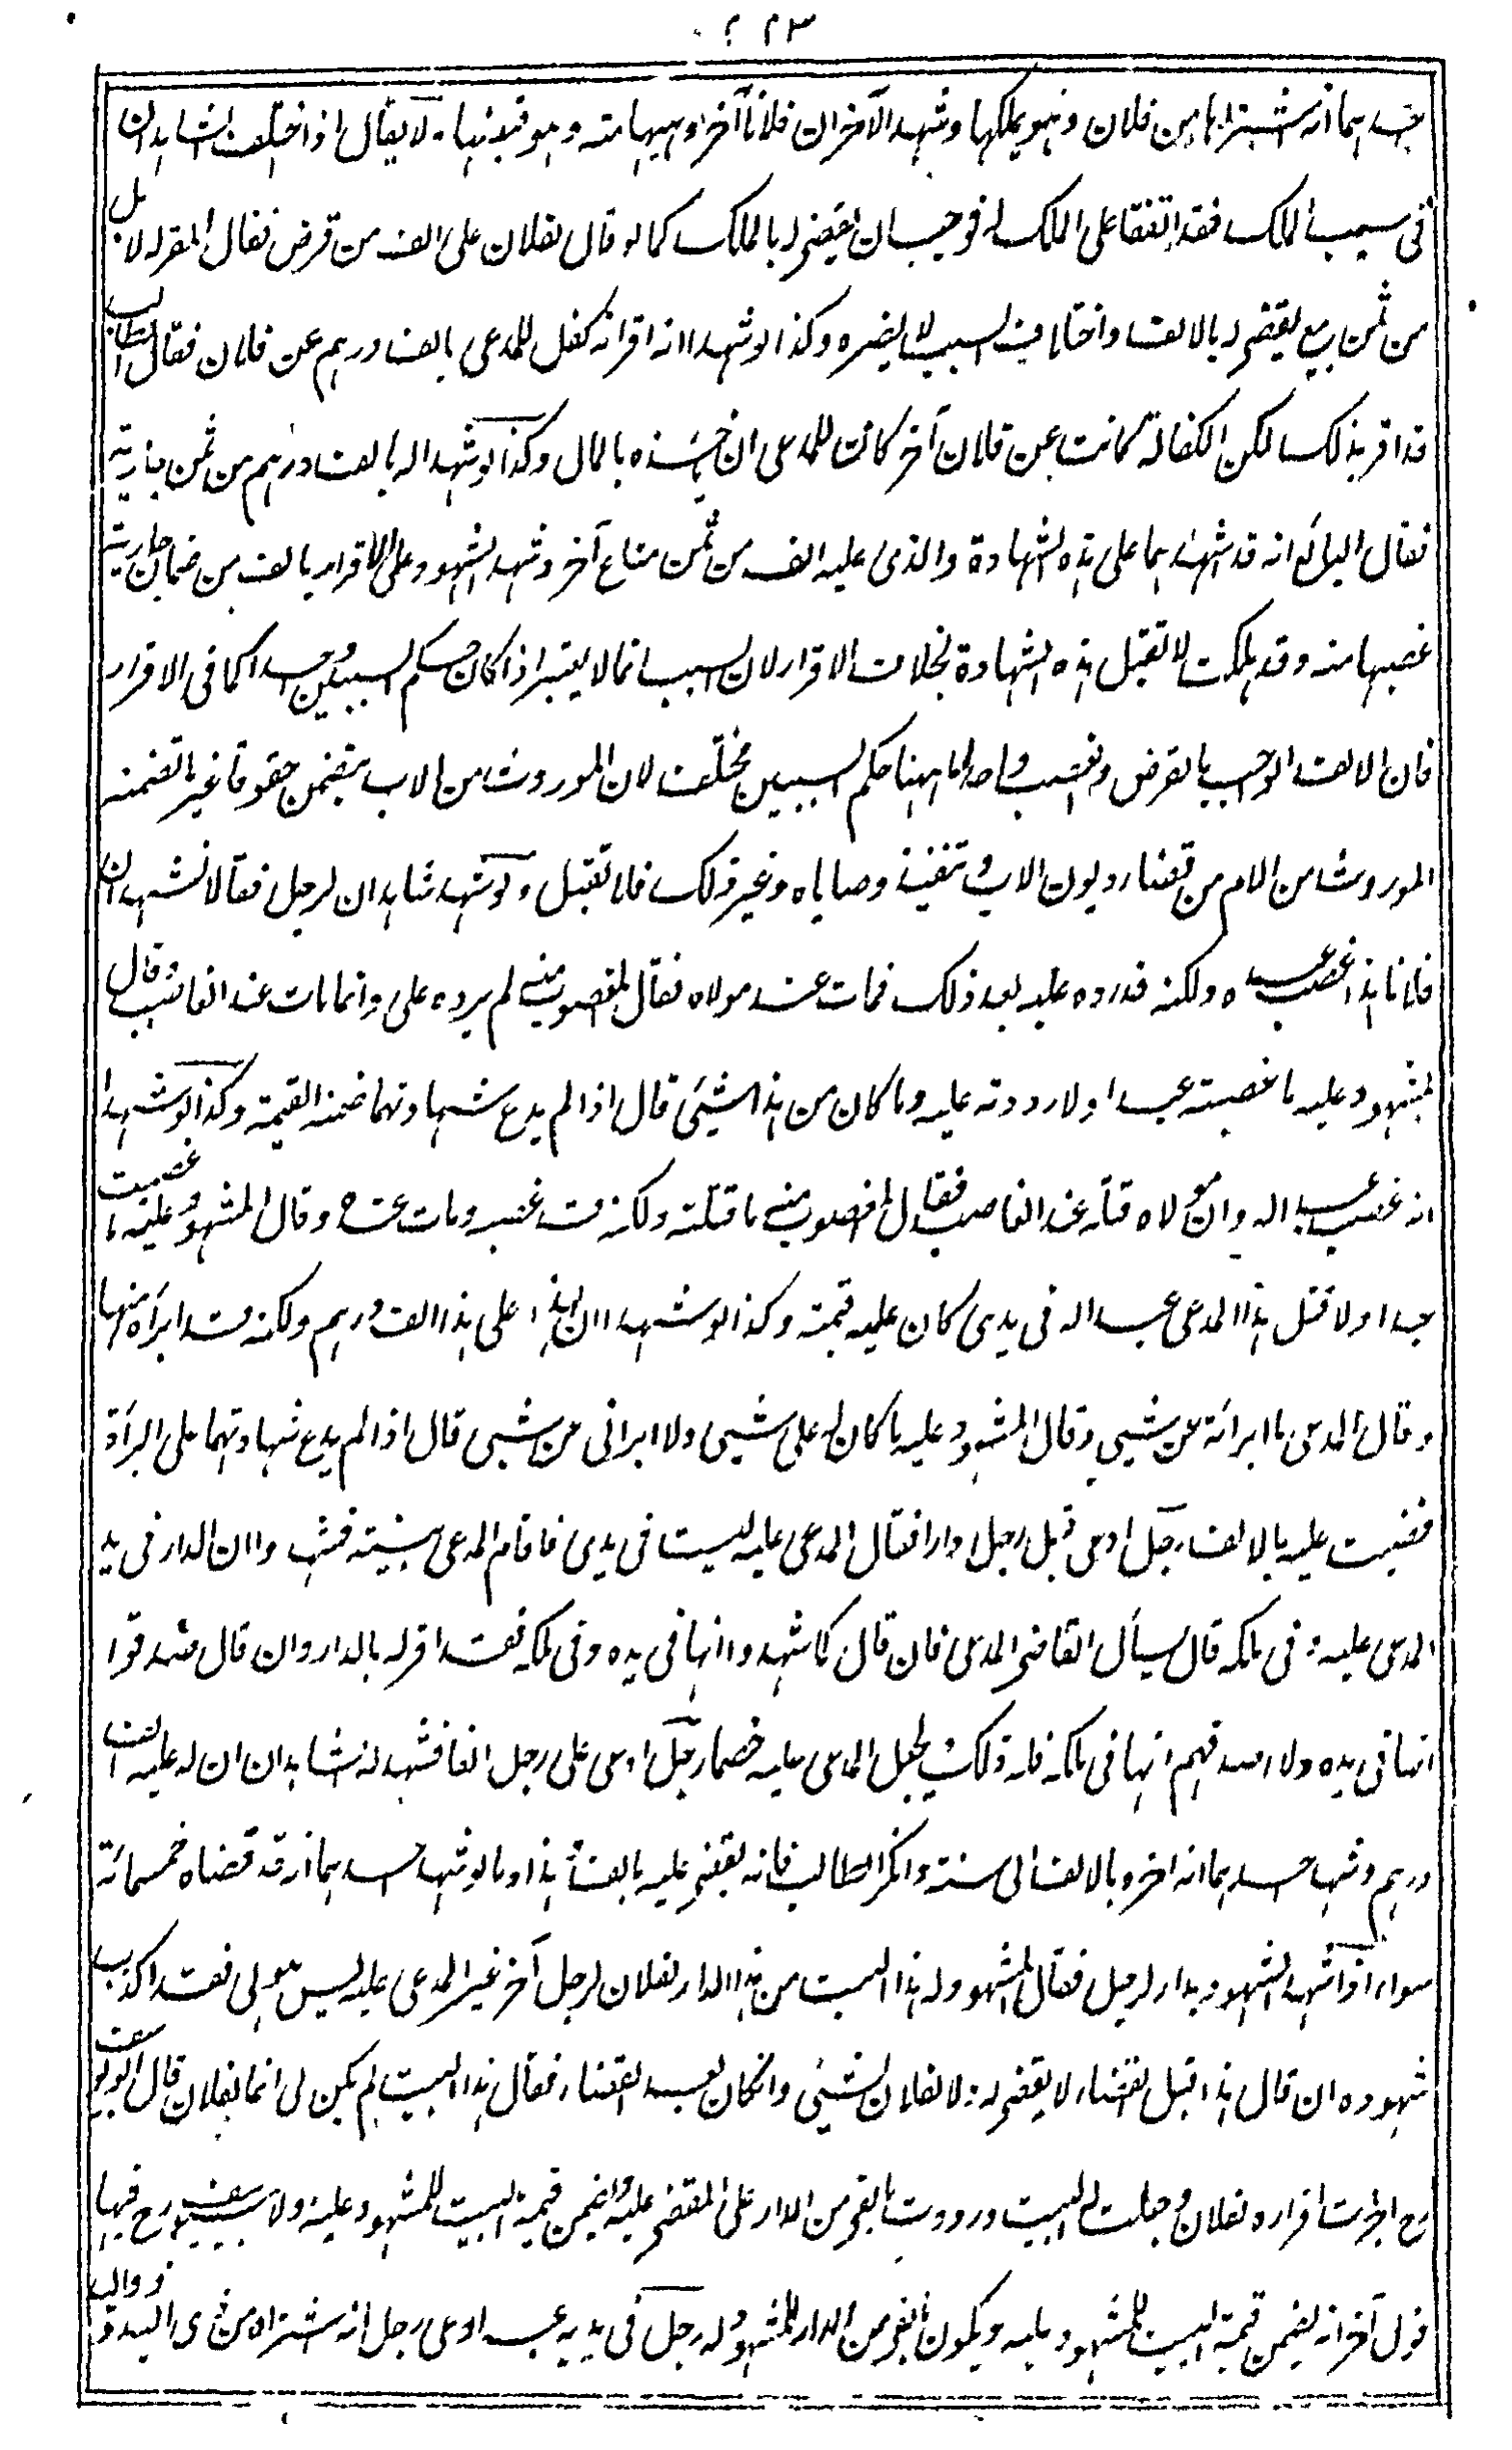 ٢٢٣
احدهما انه اشتراها من فلان وهو يملكها وشهد الآخر ان فلانا آخر وهبها منه وهو قبضها ولا يقال اذا اختلف الشاهدان
فى سبب الملك فقد اتفقا على الملك له فوجب ان يقضى له بالملك كما لو قال لفلان على الف من قرض فقال المقر له لا بل
من ثمن بيع يقضى له بالالف واختلافه فى السبب لا يضره وكذا لو شهدا انه اقر انه كفل للمدعى بالف درهم عن فلان فقال الطالب
قد اقر بذلك لكن الكفالة كانت عن فلان آخر كانت للمدعى ان يأخذه بالمال وكذا لو شهدا له بالف درهم من ثمن جارية
فقال البائع انه قد اشهدهما على هذه الشهادة والذى عليه الف من ثمن متاع آخر وشهد الشهود على الاقرار بالف من ضمان جارية
غصبها منه وقد هلكت لا تقبل هذه الشهادة بخلاف الاقرار لان السبب انما لا يعتبر اذا كان حكم السببين واحدا كما فى الاقرار
فان الالف الواجب بالقرض والغصب واحد اما ههنا حكم السببين مختلف لان الموروث من الاب يتضمن حقوقا غير ما تضمنه
الموروث من الام من قضاء ديون الاب وتنفيذ وصاياه وغير ذلك فلا تقبل ولو شهد شاهدان لرجل فقالا نشهد ان
فلانا هذا غصب عبده ولكنه قد رده عليه بعد ذلك فمات عند مولاه فقال المغصوب منه لم يرده على وانما مات عند الغاصب وقال
المشهود عليه ما غصبته عبدا ولا رددته عليه وما كان من هذا شيئ قال اذا لم يدع شهادتهما ضمنه القيمة وكذا لو شهدا
انه غصب عبدا له وان مولاه قتله عند الغاصب فقال المغصوب منه ما قتلته ولكنه قد غصبه ومات عنده وقال المشهود عليه ما غصبت
عبدا ولا قتل هذا المدعى عبدا له فى يدى كان عليه قيمته وكذا لو شهدا ان لهذا على هذا الف درهم ولكنه قد ابرأه منها
وقال المدعى ما ابرأته عن شيئ وقال المشهود عليه ما كان له على شيئ ولا ابرأنى عن شيئ قال اذا لم يدع شهادتهما على البراءة
قضيت عليه بالالف رجل ادعى قبل رجل دارا فقال المدعى عليه ليست فى يدى فاقام المدعى بينة فشهدوا ان الدار فى يد
المدعى عليه وفى ملكه قال يسأل القاضى المدعى فان قال كما شهدوا انها فى يده وفى ملكه فقد اقر له بالدار وان قال صدقوا
انها فى يده ولا اصدقهم انها فى ملكه فله ذلك ويجعل المدعى عليه خصما رجل ادعى على رجل الفا فشهد له شاهدان ان له عليه الف
درهم وشهد احدهما انه اخره بالالف الى سنة وانكر الطالب فانه يقضى عليه بالف هذا وما لو شهد احدهما انه قد قضاه خمسمائة
سواء اذا شهد الشهود بدار لرجل فقال المشهود له هذا البيت من هذا الدار لفلان لرجل آخر غير المدعى عليه ليس هو لى فقد اكذب
شهوده ان قال هذا قبل القضاء لا يقضى له ولا لفلان بشيئ وان كان بعد القضاء فقال هذا البيت لم يكن لى انما لفلان قال ابو يوسف
رح اجزت اقراره لفلان وجعلت له البيت ورددت ما بقى من الدار على المقضى عليه ويضمن قيمة البيت للمشهود عليه ولابى يوسف رح فيها
قول آخر انه يضمن قيمة البيت للمشهود عليه ويكون ما بقى من الدار للمشهود له رجل فى يديه عبد ادعى رجل انه اشتراه من ذى اليد